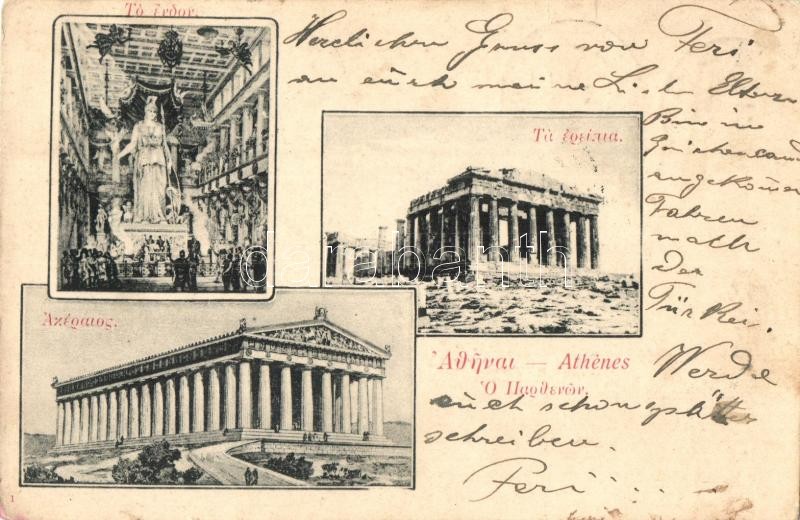 Τὸ ἔνδον.
Herzlichen Gruss von Feri
an euch meine Lieben Eltern
Bin in
Griechenland
angekommen
Fahren
nach
Der
Türkei.
Werde
euch schon später
schreiben.
Feri...
Τὰ ἐρείπια.
Ἀκέραιος.
Ἀθῆναι — Athènes
Ὁ Παρθενών.
darabanth
1